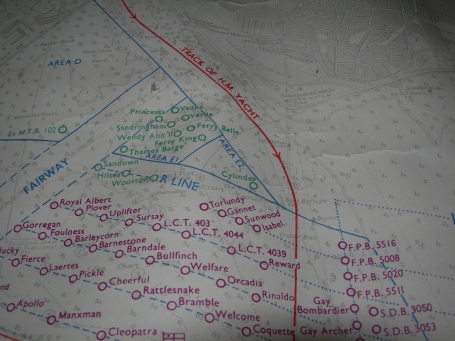 AREA D
TRACK OF H.M. YACHT
Princess
Vadne
Varne
Sandringham
Ferry Belle
Wendy Ann II
Ferry King
Ex M.T.B. 102
Thames Barge
AREA E1
AREA E2
Sandown
Hilsea
Wootton
R LINE
Cylinder
FAIRWAY
Royal Albert
Plover
Torlundy
Gannet
Uplifter
Sussay
Sunwood
Isabel
Gorregan
Foulness
L.C.T. 403
L.C.T. 4044
F.P.B. 5516
Barleycorn
Barnestone
L.C.T. 4039
F.P.B. 5008
Fierce
Barndale
Bullfinch
Reward
Laertes
Welfare
F.P.B. 5020
Pickle
Cheerful
Orcadia
F.P.B. 5511
Rattlesnake
Rinaldo
Gay
Bombardier
S.D.B. 3050
Apollo
Bramble
Manxman
Welcome
Gay Archer
S.D.B. 3053
Cleopatra
Coquette